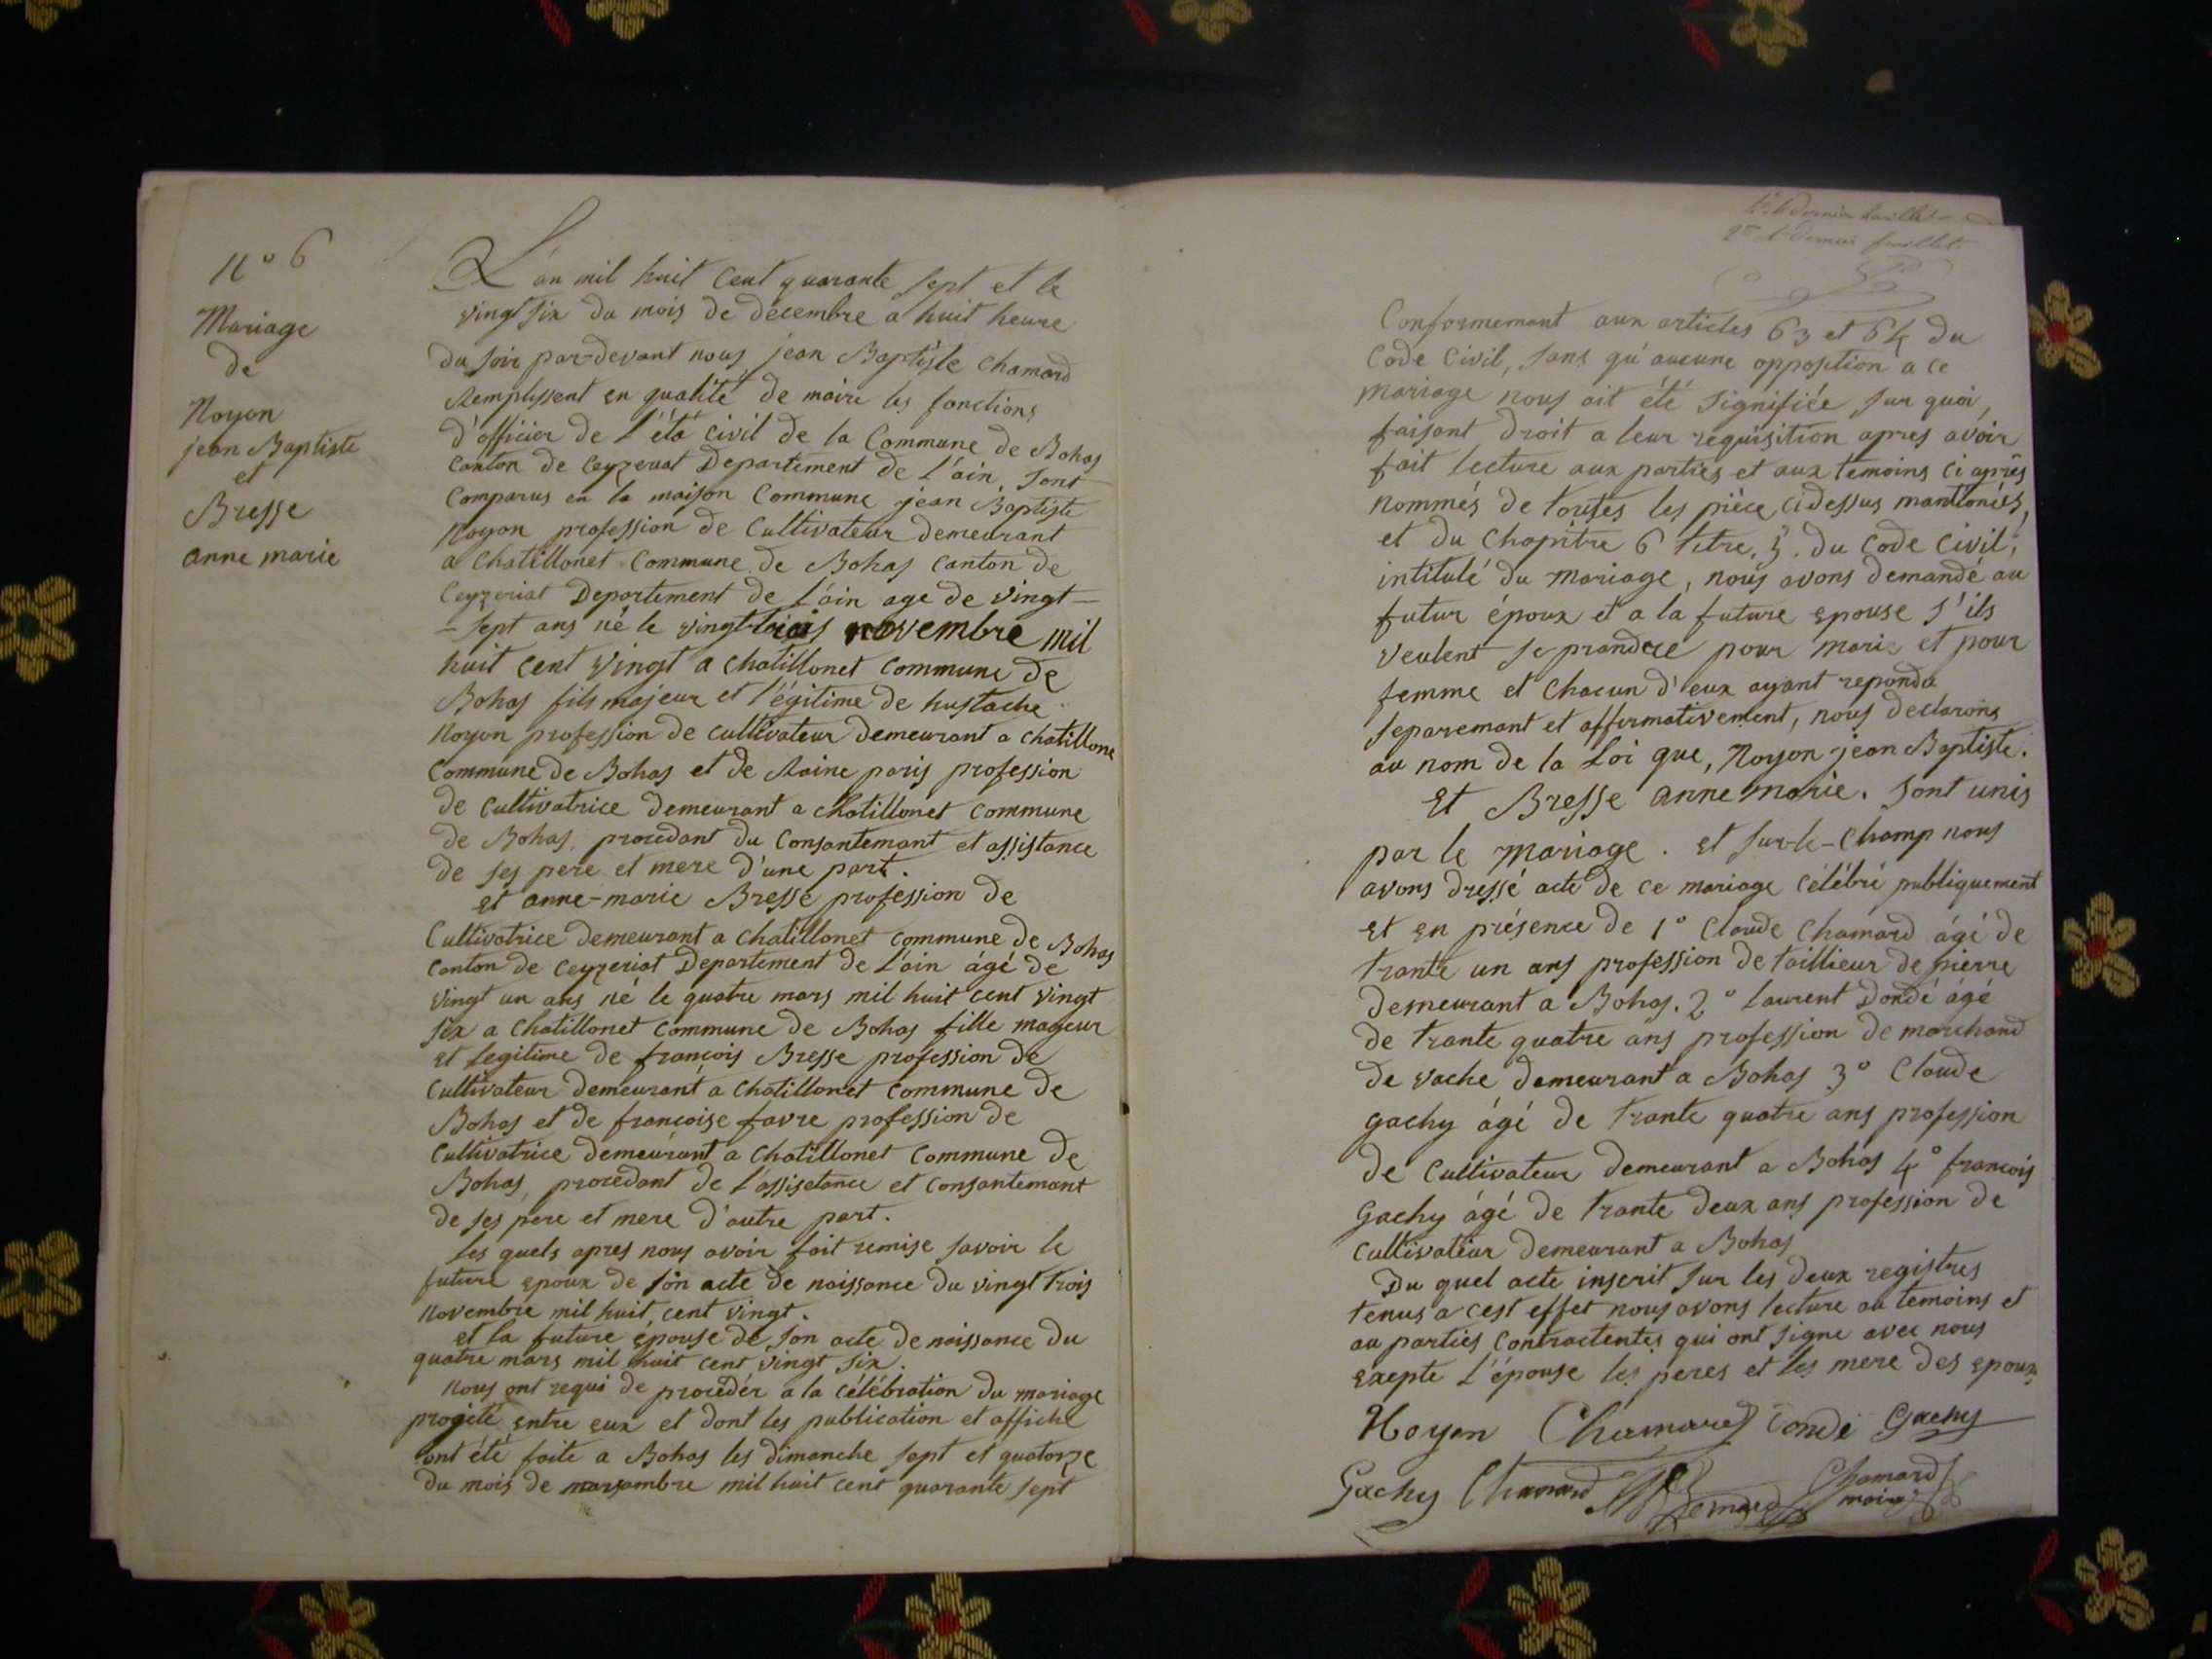 N° 6
Mariage
de
Noyon
jean Baptiste
et
Bresse
anne marie
L'an mil huit cent quarante sept et le
vingt six du mois de décembre a huit heure
du soir par-devant nous jean Baptiste Chamard
Remplissent en qualité de maire les fonctions
d'officier de l'éta civil de la Commune de Bohas
canton de Ceyzeriat Departement de l'ain, sont
Comparus en la maison Commune jean Baptiste
Noyon profession de Cultivateur demeurant
a Chatillonet Commune de Bohas Canton de
Ceyzeriat Departement de l'ain age de vingt-
-sept ans né le vingt trois novembre mil
huit cent vingt a chatillonet commune de
Bohas fils majeur et légitime de hustache
Noyon profession de cultivateur demeurant a chatillone
Commune de Bohas et de Raine paris profession
de cultivatrice demeurant a chatillonet commune
de Bohas, procedant du Consantemant et assistance
de ses pere et mere d'une part.
et anne-marie Bresse profession de
Cultivatrice demeurant a chatillonet commune de Bohas
Canton de Ceyzeriat Departement de l'ain âgé de
vingt un ans né le quatre mars mil huit cent vingt
six a Chatillonet commune de Bohas fille mageur
et legitime de françois Bresse profession de
Cultivateur demeurant a Chatillonet Commune de
Bohas et de francoise favre profession de
Cultivatrice demeurant a Chatillonet commune de
Bohas, procedant de l'assisetance et consantemant
de ses pere et mere d'autre part.
les quels apres nous avoir fait remise savoir le
future epoux de son acte de naissance du vingt trois
novembre mil huit cent vingt.
et la future épouse de son acte de naissance du
quatre mars mil huit cent vingt six.
Nous ont requi de procédér a la célébration du mariage
progété entre eux et dont les publication et affiche
ont été faite a Bohas les dimanche sept et quatorze
du mois de mil huit cent quarante sept
Conformemant aux articles 63 et 64 du
Code Civil, sans qu'aucune opposition a ce
mariage nous ait été signifiée sur quoi,
faisant droit a leur requisition apres avoir
fait lecture aux parties et aux temoins ci après
nommés de toutes les pièce cidessus mantionées,
et du chapitre 6 titre. 5. du Code Civil,
intitulé du mariage, nous avons demandé au
futur époux et a la future epouse s'ils
veulent se prandere pour mari et pour
femme et chacun d'eux ayant repondu
separemant et affirmativement, nous declarons
au nom de la Loi que, Noyon jean Baptiste.
Et Bresse anne marie. sont unis
par le mariage. et sur-le-champ nous
avons dressé acte de ce mariage célébré publiquement
et en présence de 1° Claude Chamard âgé de
trante un ans profession de taillieur de pierre
demeurant a Bohas. 2° laurent Dondé âgé
de trante quatre ans profession de marchand
de vache demeurant a Bohas 3° Claude
gachy âgé de trante quatre ans profession
de cultivateur demeurant a Bohas 4° francois
Gachy âgé de trante deux ans profession de
cultivateur demeurant a Bohas
Du quel acte inscrit sur les deux registres
tenus a cest effet nous avons lecture au temoins et
au parties contractentes qui ont signe avec nous
exepte l'épouse les peres et les mere des epoux
Noyon Chamard Dondé Gachy
Gachy Chamard
Chamard
maire